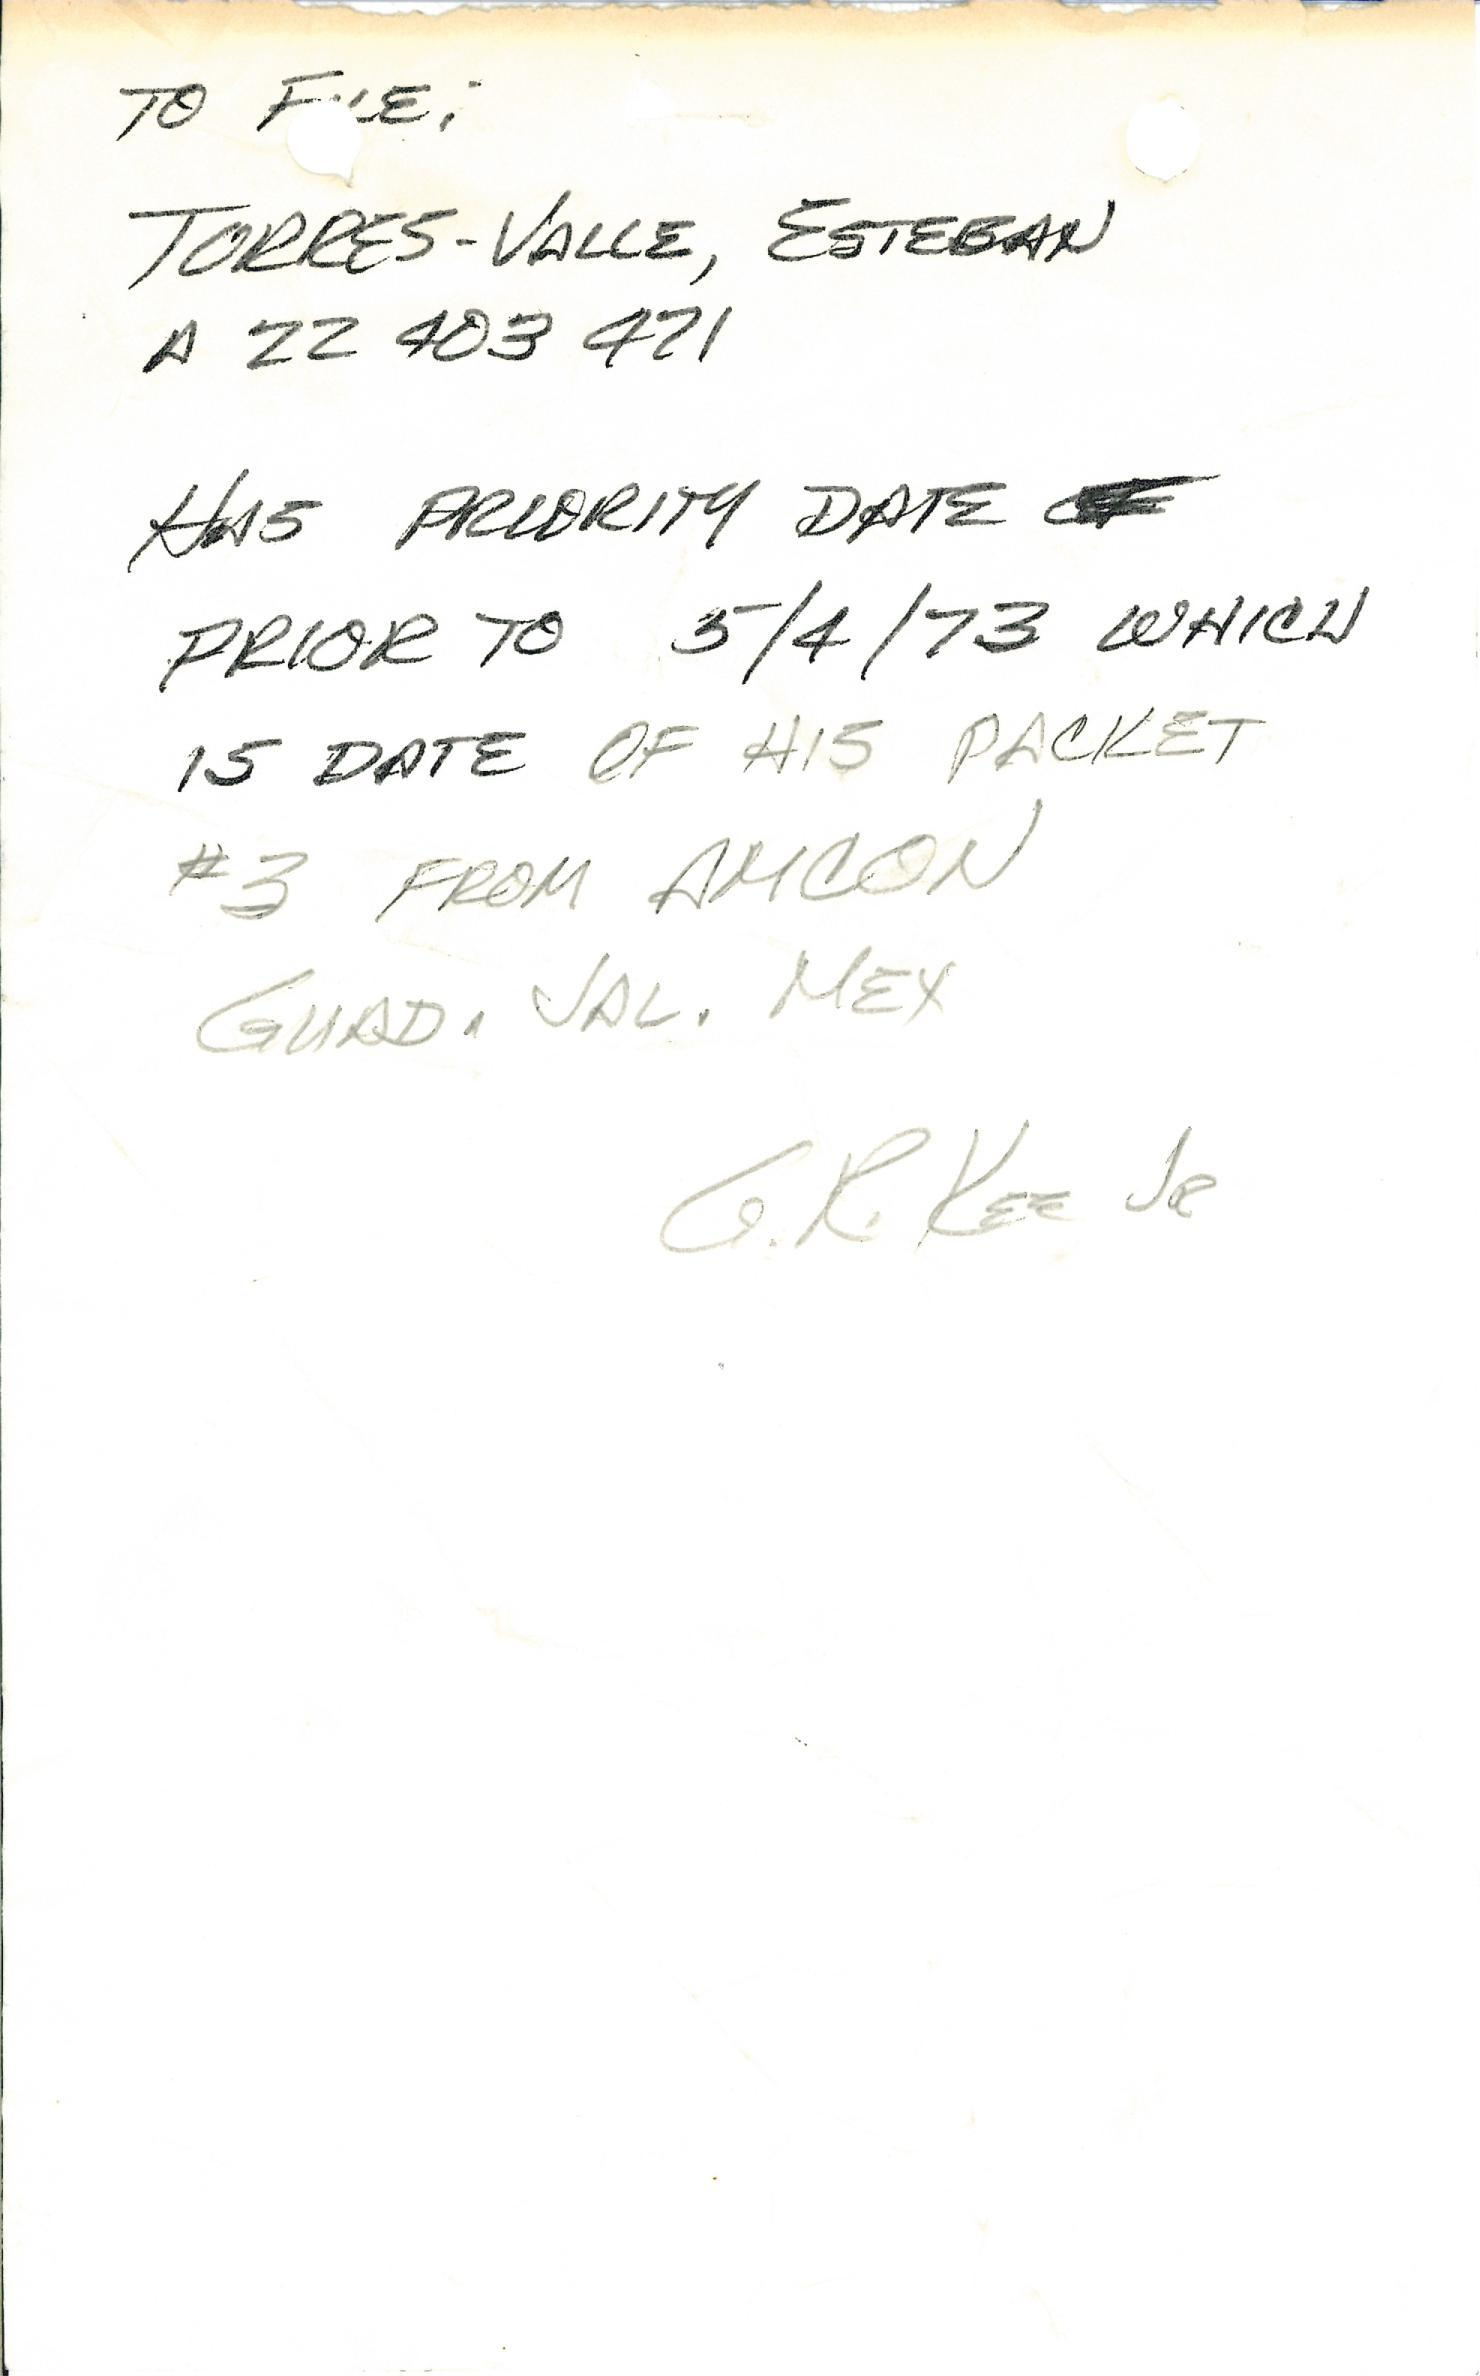 TO FILE:
TORRES-VALLE, ESTEBAN
A 22 403 471
HAS PRIORITY DATE
PRIOR TO 5/4/73 WHICH
IS DATE OF HIS PACKET
#3 FROM AMCON
GUAD. JAL. MEX
G.R. KEE JR